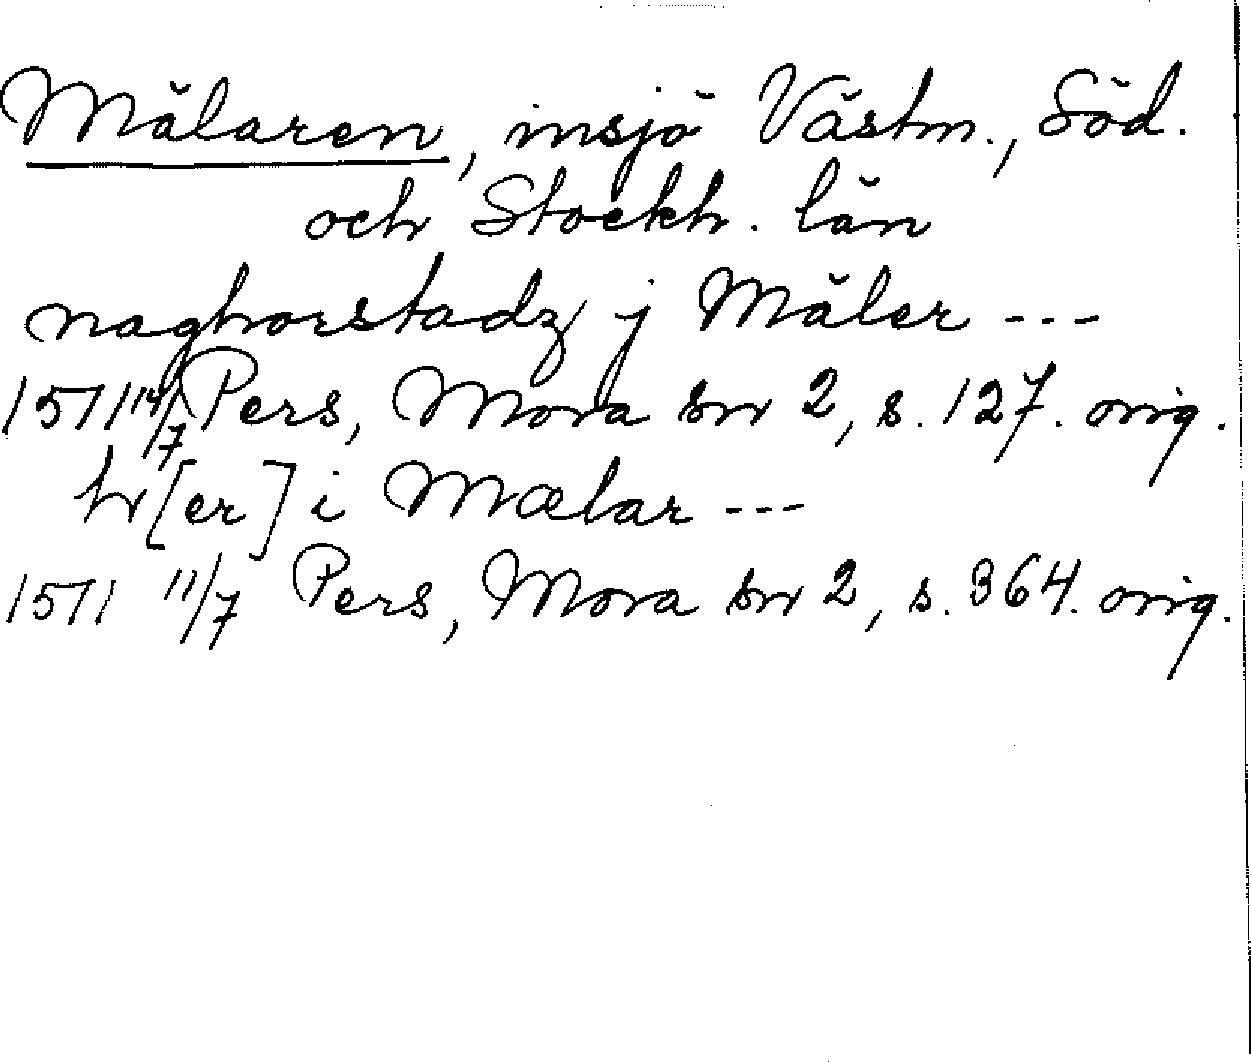 Mälaren, insjö Västm., Söd.
och Stockh. län
naghorstadz j Mäler ---
1571 14/7 Pers, Mora snr 2, s. 127. orig.
h[er] i Mælar ---
1571 11/7 Pers, Mora snr 2, s. 364. orig.